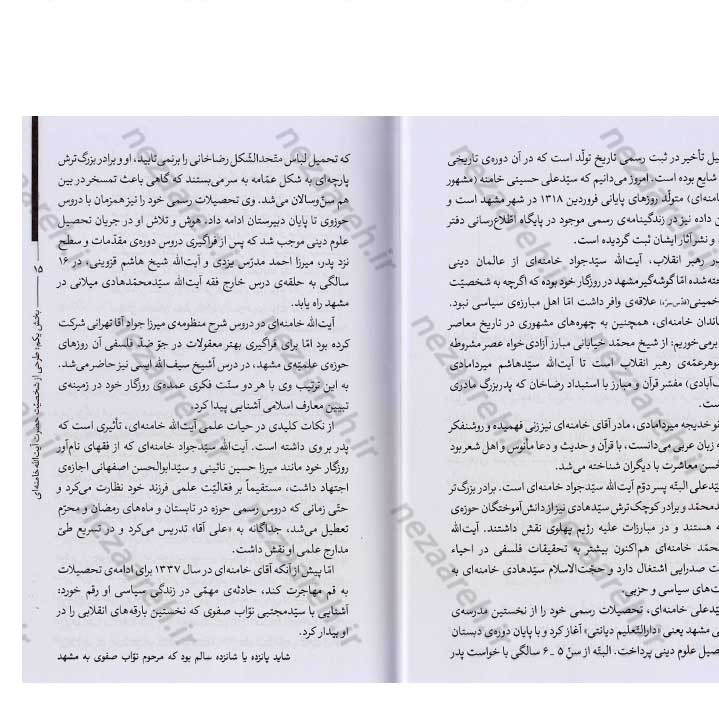 یل تأخیر در ثبت رسمی تاریخ تولّد است که در آن دوره‌ی تاریخی
شایع بوده است. امروز می‌دانیم که سیّدعلی حسینی خامنه (مشهور
امنه‌ای) متولّد روزهای پایانی فروردین ۱۳۱۸ در شهر مشهد است و
ن داده نیز در زندگینامه‌ی رسمی موجود در پایگاه اطّلاع‌رسانی دفتر
و نشر آثار ایشان ثبت گردیده است.
در رهبر انقلاب، آیت‌الله سیّدجواد خامنه‌ای از عالمان دینی
خته‌شده امّا گوشه‌گیر مشهد در روزگار خود بوده که اگرچه به شخصیّت
خمینی علاقه‌ی وافر داشت امّا اهل مبارزه‌ی سیاسی نبود.
ماندان خامنه‌ای، همچنین به چهره‌های مشهوری در تاریخ معاصر
برمی‌خوریم: از شیخ محمّد خیابانی مبارز آزادی‌خواه عصر مشروطه
وهرعمّه‌ی رهبر انقلاب است تا آیت‌الله سیّدهاشم میردامادی
ف‌آبادی) مفسّر قرآن و مبارز با استبداد رضاخان که پدربزرگ مادری
ست.
نو خدیجه میردامادی، مادر آقای خامنه‌ای نیز زنی فهمیده و روشنفکر
ه زبان عربی می‌دانست، با قرآن و حدیث و دعا مأنوس و اهل شعر بود
حُسن معاشرت با دیگران شناخته می‌شد.
یّدعلی البتّه پسر دوّم آیت‌الله سیّدجواد خامنه‌ای است. برادر بزرگ‌تر
دمحمّد و برادر کوچک‌ترش سیّدهادی نیز از دانش‌آموختگان حوزه‌ی
ه هستند و در مبارزات علیه رژیم پهلوی نقش داشتند. آیت‌الله
حمّد خامنه‌ای هم‌اکنون بیشتر به تحقیقات فلسفی در احیاء
ت صدرایی اشتغال دارد و حجّت‌الاسلام سیّدهادی خامنه‌ای به
ت‌های سیاسی و حزبی.
یّدعلی خامنه‌ای، تحصیلات رسمی خود را از نخستین مدرسه‌ی
ی مشهد یعنی «دارالتّعلیم دیانتی» آغاز کرد و با پایان دوره‌ی دبستان
صیل علوم دینی پرداخت. البتّه از سنّ ۵ ـ ۶ سالگی با خواست پدر
که تحمیل لباس متّحدالشّکل رضاخانی را برنمی‌تابید، او و برادر بزرگ‌ترش
پارچه‌ای به شکل عمّامه به سر می‌بستند که گاهی باعث تمسخر در بین
هم سنّ‌وسالان می‌شد. وی تحصیلات رسمی خود را نیز همزمان با دروس
حوزوی تا پایان دبیرستان ادامه داد. هوش و تلاش او در جریان تحصیل
علوم دینی موجب شد که پس از فراگیری دروس دوره‌ی مقدّمات و سطح
نزد پدر، میرزا احمد مدرّس یزدی و آیت‌الله شیخ هاشم قزوینی، در ۱۶
سالگی به حلقه‌ی درس خارج فقه آیت‌الله سیّدمحمّدهادی میلانی در
مشهد راه یابد.
آیت‌الله خامنه‌ای در دروس شرح منظومه‌ی میرزا جواد آقا تهرانی شرکت
کرده بود امّا برای فراگیری بهتر معقولات در جوّ ضدّ فلسفی آن روزهای
حوزه‌ی علمیّه‌ی مشهد، در درس آشیخ سیف‌الله ایسی نیز حاضر می‌شد.
به این ترتیب وی با هر دو سنّت فکری عمده‌ی روزگار خود در زمینه‌ی
تبیین معارف اسلامی آشنایی پیدا کرد.
از نکات کلیدی در حیات علمی آیت‌الله خامنه‌ای، تأثیری است که
پدر بر وی داشته است. آیت‌الله سیّدجواد خامنه‌ای که از فقهای نام‌آور
روزگار خود مانند میرزا حسین نائینی و سیّدابوالحسن اصفهانی اجازه‌ی
اجتهاد داشت، مستقیماً بر فعّالیّت علمی فرزند خود نظارت می‌کرد و
حتّی زمانی که دروس رسمی حوزه در تابستان و ماه‌های رمضان و محرّم
تعطیل می‌شد، جداگانه به «علی آقا» تدریس می‌کرد و در تسریع طیّ
مدارج علمی او نقش داشت.
امّا پیش از آنکه آقای خامنه‌ای در سال ۱۳۳۷ برای ادامه‌ی تحصیلات
به قم مهاجرت کند، حادثه‌ی مهمّی در زندگی سیاسی او رقم خورد:
آشنایی با سیّدمجتبی نوّاب صفوی که نخستین بارقه‌های انقلابی را در
او بیدار کرد.
شاید پانزده یا شانزده سالم بود که مرحوم نوّاب صفوی به مشهد
۱۵
بخش یکم: طرحی از شخصیّت حضرت آیت‌الله خامنه‌ای
nezaareh.ir